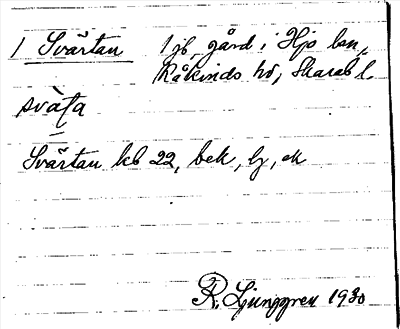 1 Svärtan 1 jb, gård i Hjo lsn,
Kåkinds hd, Skarab. l.
svàta
Svärtan kb 22, bek, lj, ek
R. Ljunggren 1930